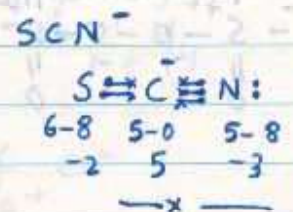 SCN⁻
S = C⁻ ≡ N:
6-8 5-0 5-8
-2 5 -3
—x—